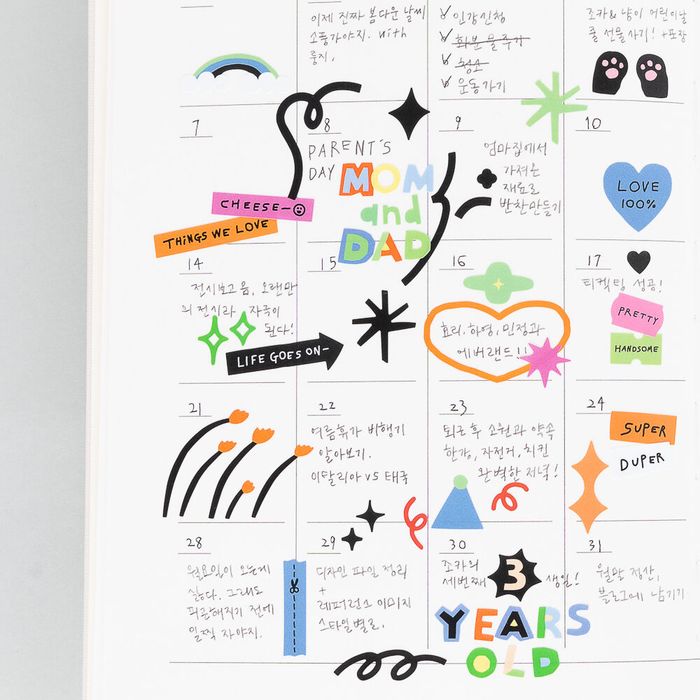 이제 진짜 봄다운 날씨
소풍가야지. with
룽지.
인강신청
화분 물주기
청소
운동가기
조카& 냥이 어린이날
줄 선물사기! +포장
7
8
PARENT'S
DAY
MOM
and
DAD
CHEESE—
THINGS WE LOVE
9
엄마집에서
가져온
재료로
반찬만들기
10
LOVE
100%
14
전시보고옴, 오랜만
의 전시라, 자극이
된다!
LIFE GOES ON-
15
16
효리, 하영, 민정과
에버랜드!!
17
티켓팅 성공!
PRETTY
HANDSOME
21
22
여름휴가 비행기
알아보기.
이탈리아 vs 태국
23
퇴근 후 소원과 약속
한강, 자전거, 치킨
완벽한 저녁!
24
SUPER
DUPER
28
월요일이 오는게
싫다. 그래도
피곤해지기 전에
일찍 자야지.
29
디자인 파일 정리
+
레퍼런스 이미지
스타일별로.
30
조카의
세번째 3 생일!
YEARS
OLD
31
월말 정산,
블로그에 남기기